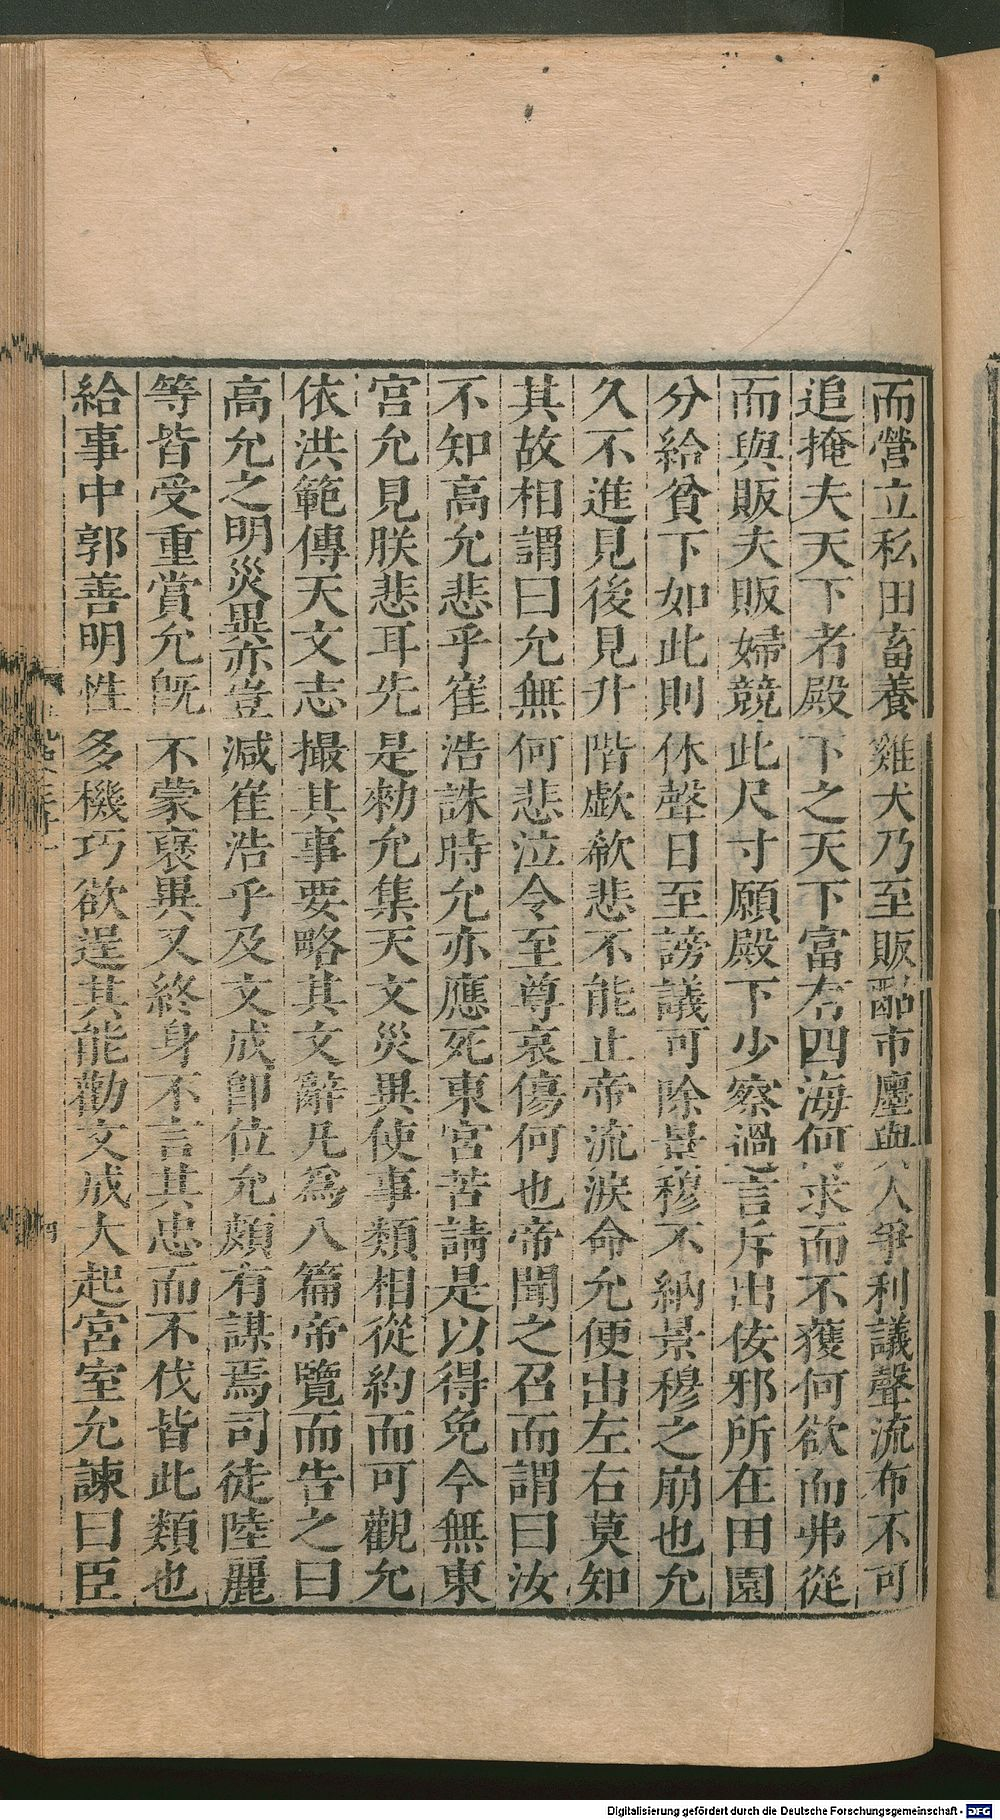 而營立私田畜養雞犬乃至販酤市廛與人爭利議聲流布不可
追掩夫天下者殿下之天下富有四海何求而不獲何欲而弗從
而與販夫販婦競此尺寸願殿下少察過言斥出佞邪所在田園
分給貧下如此則休聲日至謗議可除景穆不納景穆之崩也允
久不進見後見升階歔欷悲不能止帝流淚命允便出左右莫知
其故相謂曰允無何悲泣令至尊哀傷何也帝聞之召而謂曰汝
不知高允悲乎崔浩誅時允亦應死東宮苦請是以得免今無東
宮允見朕悲耳先是勑允集天文災異使事類相從約而可觀允
依洪範傳天文志撮其事要略其文辭凡爲八篇帝覽而告之曰
高允之明災異亦豈減崔浩乎及文成卽位允頗有謀焉司徒陸麗
等皆受重賞允旣不蒙襃異又終身不言其忠而不伐皆此類也
給事中郭善明性多機巧欲逞其能勸文成大起宮室允諫曰臣
Digitalisierung gefördert durch die Deutsche Forschungsgemeinschaft - DFG